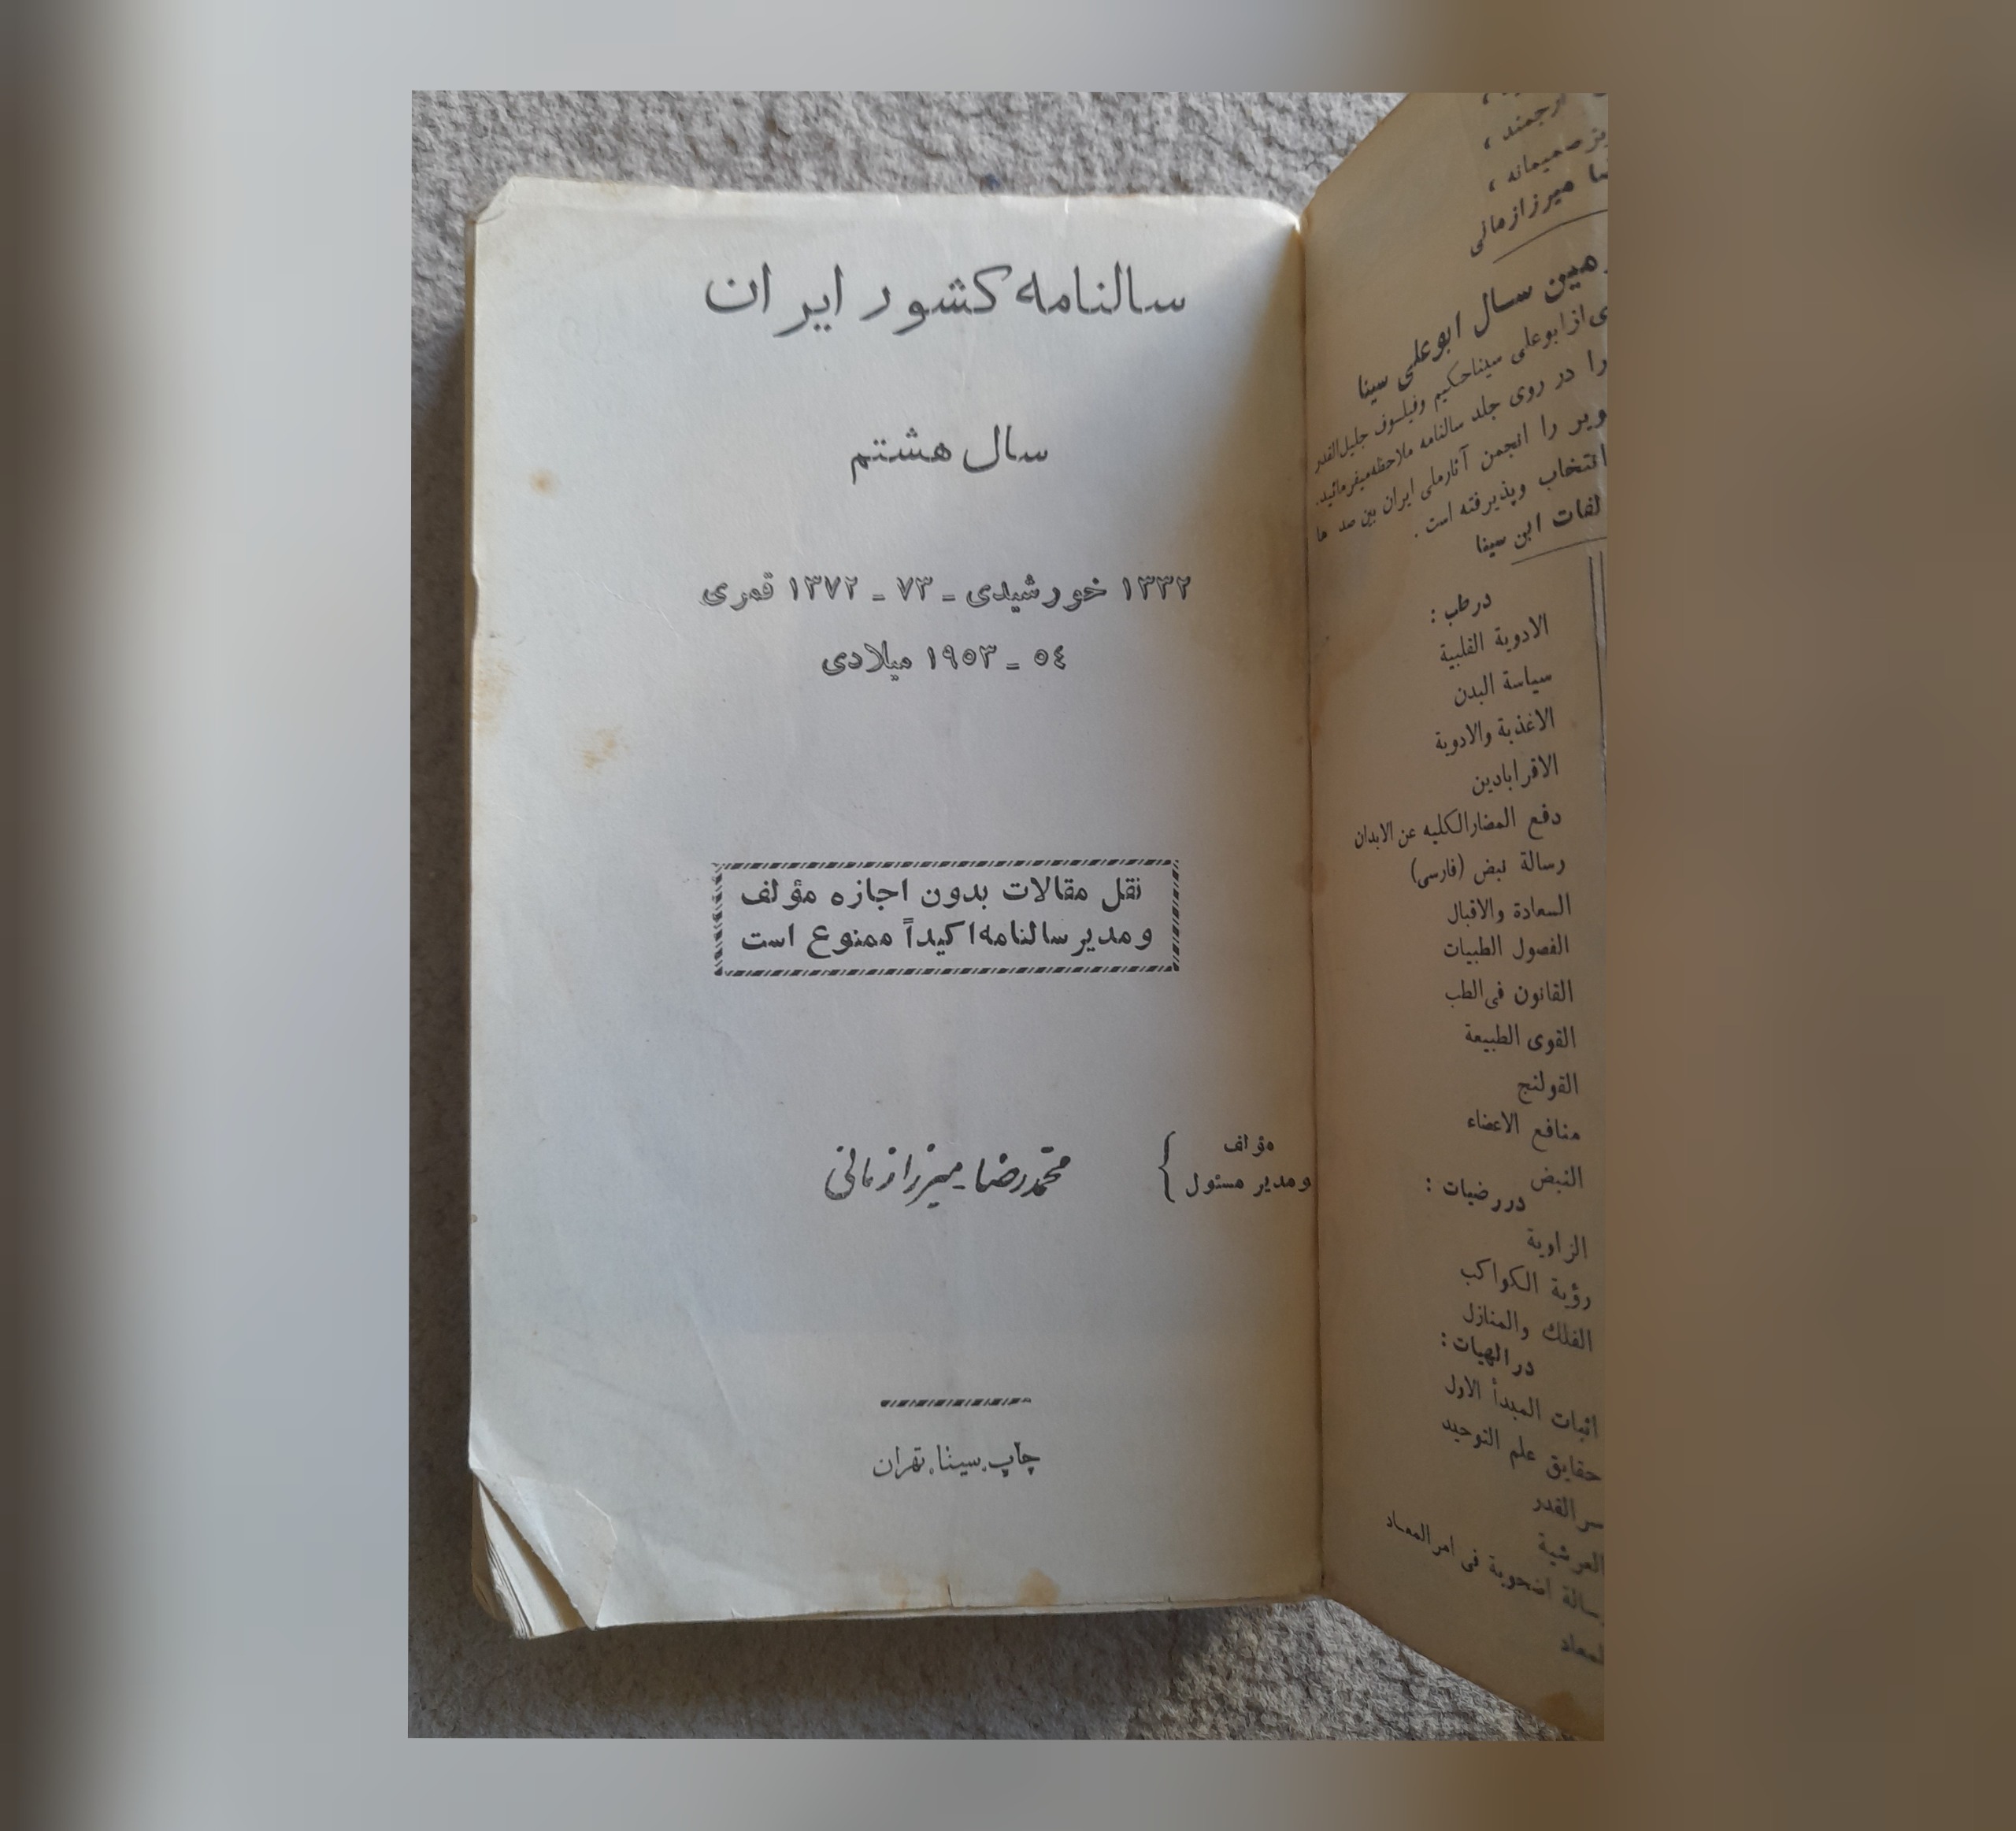 سالنامه کشور ایران
سال هشتم
۱۳۳۲ خورشیدی ـ ۷۳ ـ ۱۳۷۲ قمری
٥٤ ـ ۱۹٥۳ میلادی
نقل مقالات بدون اجازه مؤلف
و مدیر سالنامه اکیداً ممنوع است
مؤلف
و مدیر مسئول } محمدرضا میرزازمانی
چاپ سینا، تهران
رجمند ،
صمیمانه ،
میرزازمانی
مین سال ابوعلی سینا
از ابوعلی سینا حکیم وفیلسوف جلیل القدر
را در روی جلد سالنامه ملاحظه میفرمائید.
ویر را انجمن آثار ملی ایران بین صد ها
انتخاب وپذیرفته است .
لفات ابن سینا
در طب :
الادویة القلبیة
سیاسة البدن
الاغذیة والادویة
الاقرابادین
دفع المضار الکلیه عن الابدان
رسالة نبض (فارسی)
السعادة والاقبال
الفصول الطبیات
القانون فی الطب
القوی الطبیعة
القولنج
منافع الاعضاء
النبض
در رضیات :
الزاویة
رؤیة الکواکب
الفلك والمنازل
در الهیات :
اثبات المبدأ الاول
حقایق علم التوحید
سر القدر
العرشیة
سالة اضحویة فی امر المعاد